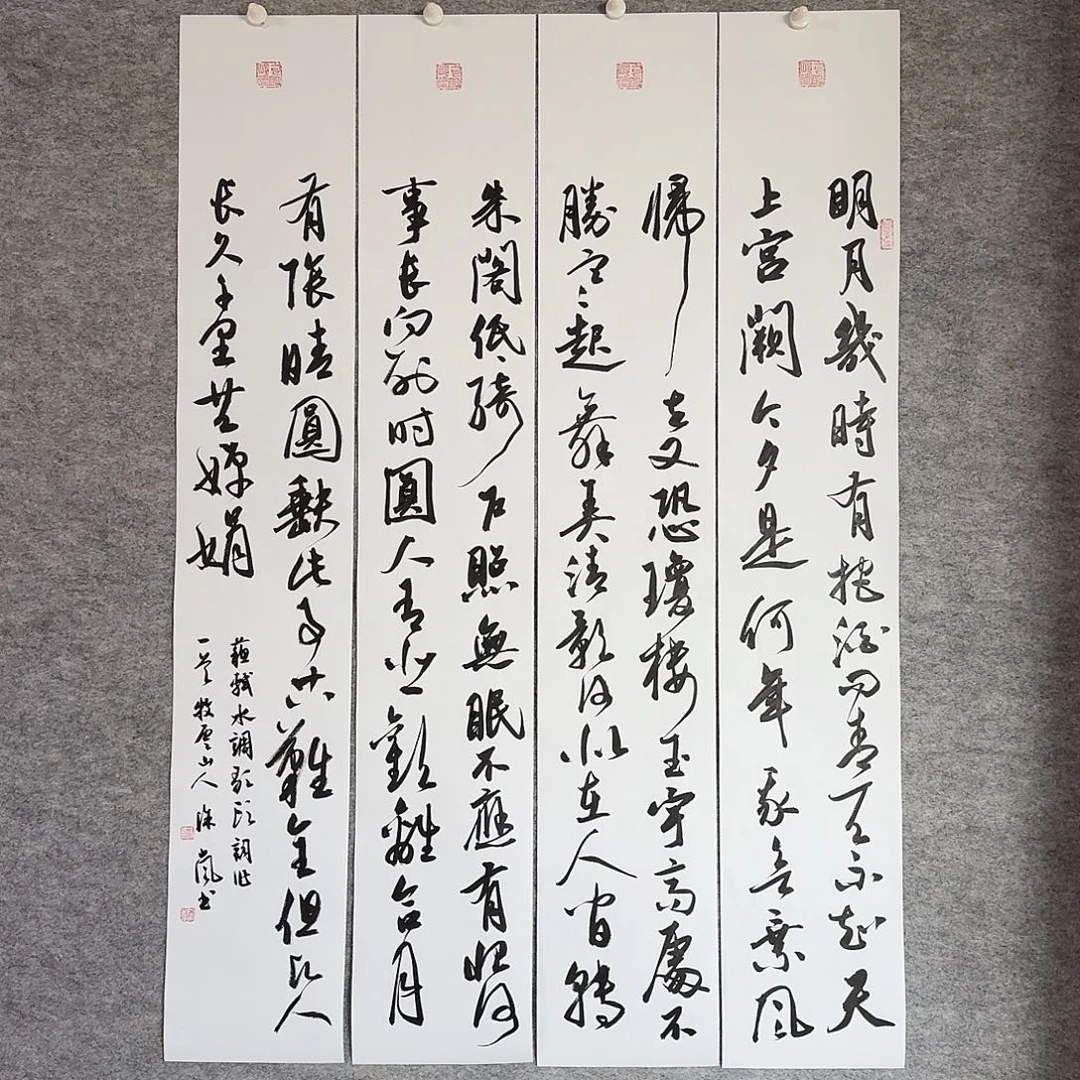 明月幾時有把酒問青天不知天
上宮闕今夕是何年我欲乘風
歸去又恐瓊樓玉宇高處不
勝寒起舞弄清影何似在人間轉
朱閣低綺戶照無眠不應有恨何
事長向别時圓人有悲歡離合月
有陰晴圓缺此事古難全但願人
長久千里共嬋娟
蘇軾水調歌頭詞作
牧雲山人徐嵐书